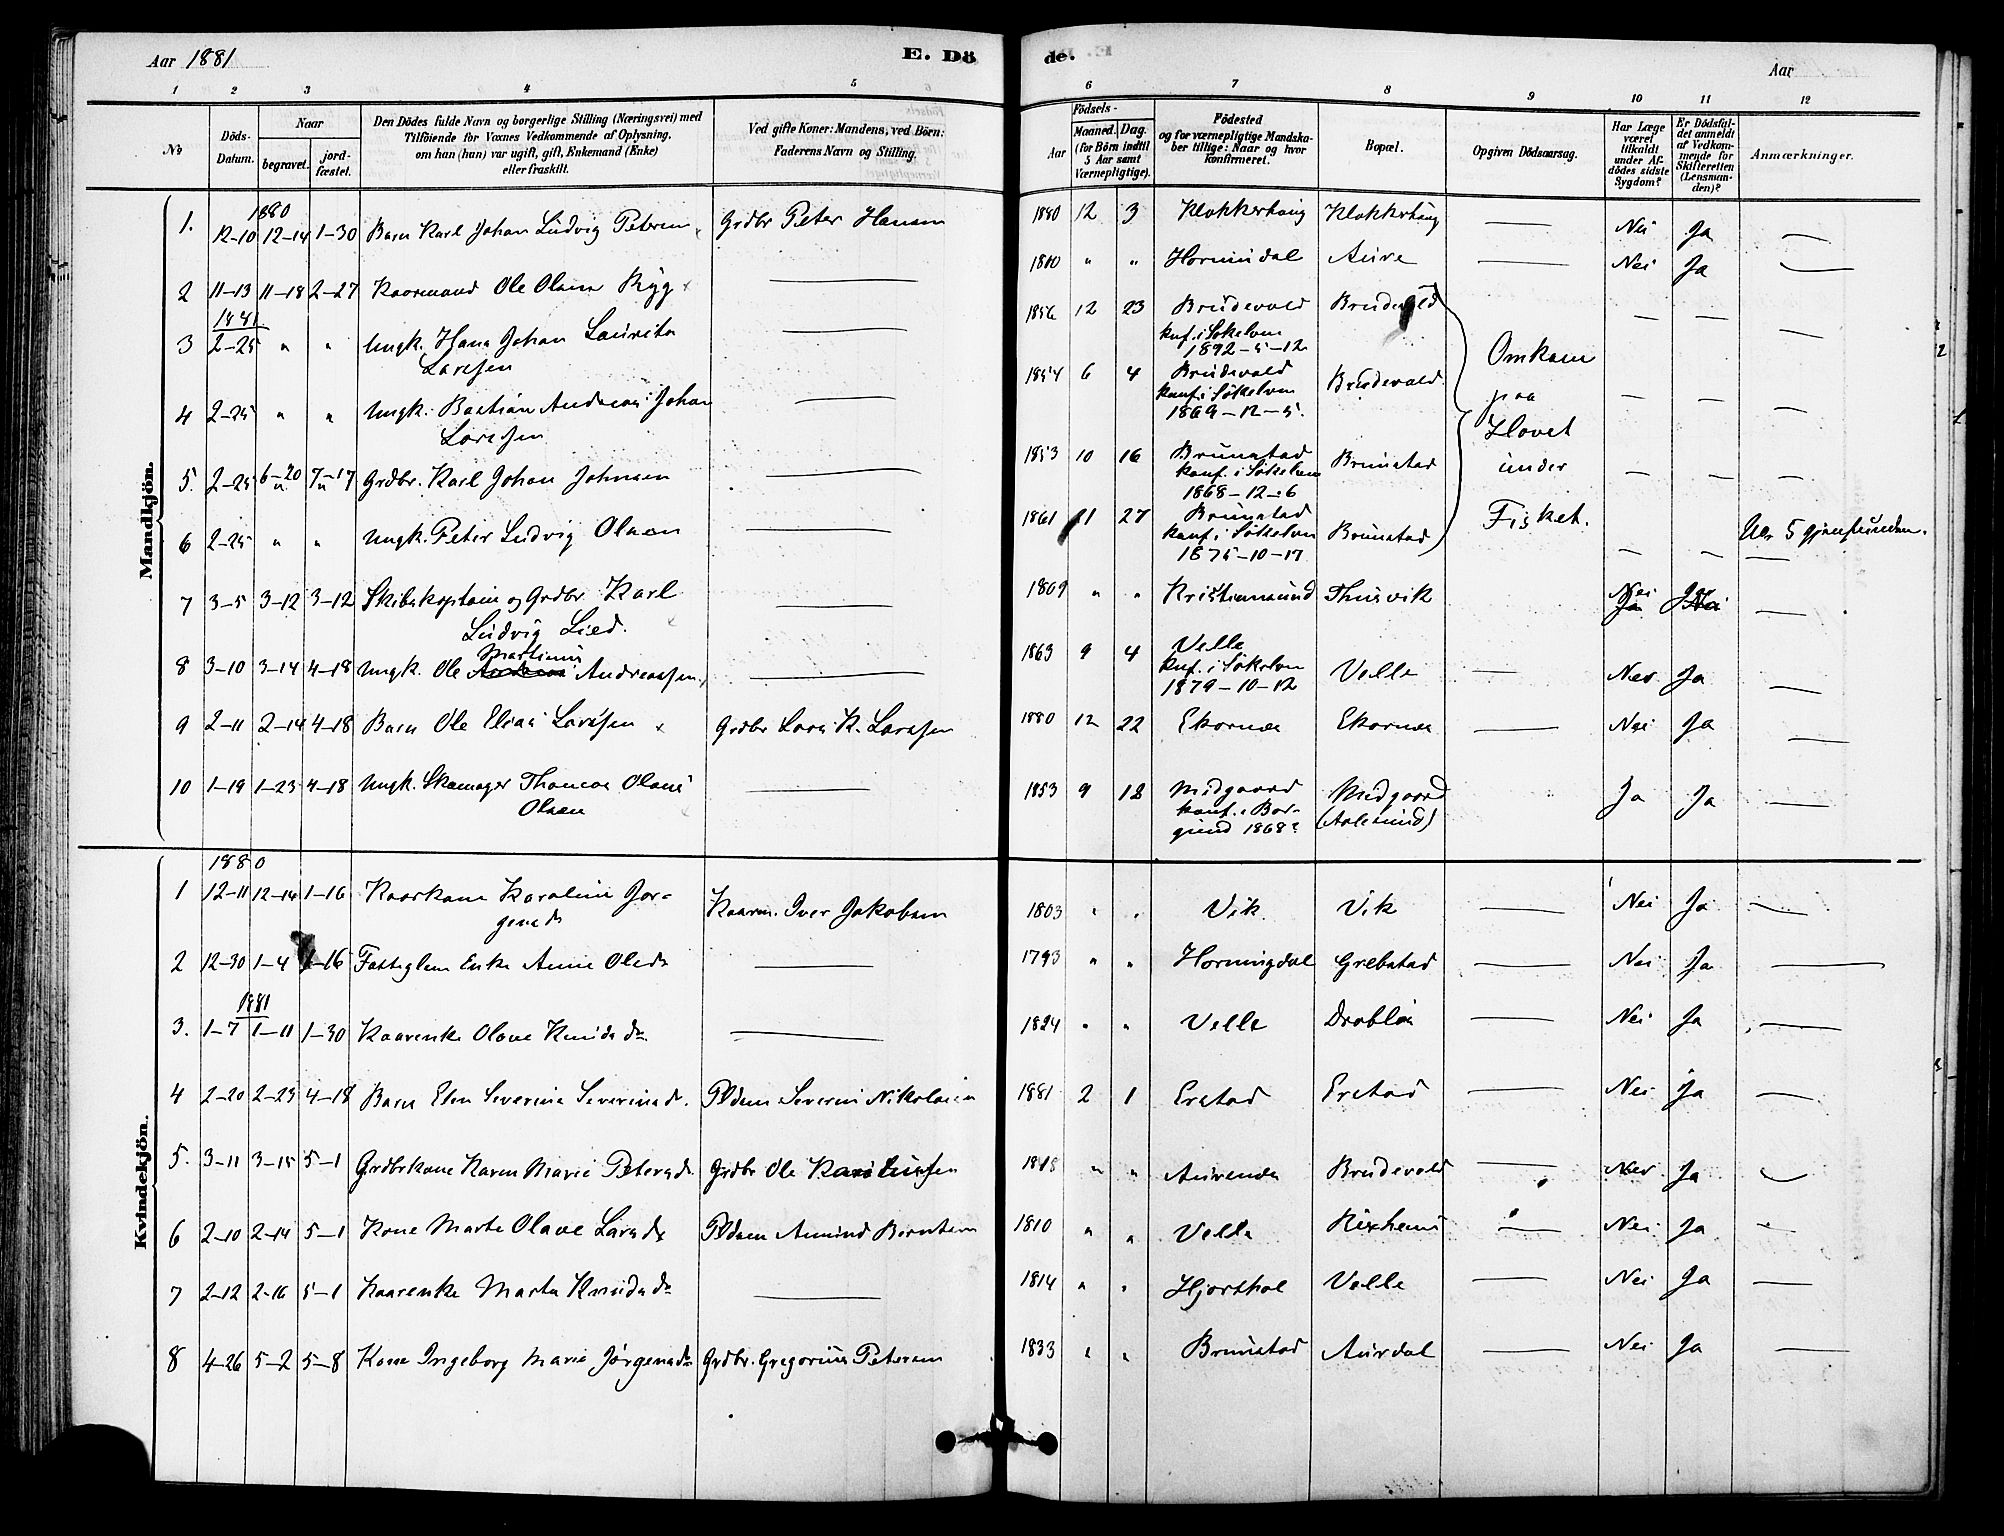 Aar 1881
E. Dö
de.
Aar
1 2 3 4 5
6 7 8 9 10 11 12
No
Döds-Datum.
Naar
begravet.
jord-fæstet.
Den Dödes fulde Navn og borgerlige Stilling (Næringsvei) med
Tilföiende for Voxnes Vedkommende af Oplysning,
om han (hun) var ugift, gift, Enkemand (Enke)
eller fraskilt.
Ved gifte Koner: Mandens, ved Börn:
Faderens Navn og Stilling.
Födsels-
Aar
Maaned. Dag.
(for Börn indtil
5 Aar samt
Værnepligtige).
Födested
og for værnepligtige Mandska-
ber tillige: Naar og hvor
konfirmeret.
Bopæl.
Opgiven Dödsaarsag.
Har Læge
været
tilkaldt
under Af-
dödes sidste
Sygdom?
Er Dödsfal-
det anmeldt
af Vedkom-
mende for
Skifteretten
(Lensman-
den)?
Anmærkninger.
Mandkjön.
1880
1. 12-10 12-14 1-30 Barn Karl Johan Ludvig Petersen Grdbr Peter Hansen 1880 12 3 Klokkerhaug Klokkerhaug — Nei Ja —
2 11-13 11-18 2-27 Kaarmand Ole Olsen Ryg — 1810 " " Hornindal Aure — Nei Ja —
1881
3 2-25 " " Ungk. Hans Johan Laurits — 1856 12 23 Brudevold Brudevold — — —
Larssen
konf. i Søkelven
1892-5-12
4 2-25 " " Ungk. Bastian Andreas Johan — 1854 6 4 Brudevold Brudevold — — —
Larssen
konf. i Søkelven
1869-12-5.
5. 2-25 6-20 7-17 Grdbr. Karl Johan Johnsen — 1853 10 16 Brunstad Brunstad — — —
" "
konf. i Søkelven
1868-12-6
6 2-25 " " Ungk. Peter Ludvig Olsen — 1861 11 27 Brunstad Brunstad — — No 5 gjenfunden.
konf. i Søkelven
1875-10-17
Omkom
paa
Havet
under
Fisket.
7 3-5 3-12 3-12 Skibskaptain og Grdbr Karl — 1809 " " Kristiansund Thusvik Nei Ja —
Ludvig Lied.
Ja Nei
8 3-10 3-14 4-18 Ungk. Ole Martinus Andreassen — 1863 9 4 Velle Velle — Nei Ja —
konf. i Søkelven
1879-10-12
9 2-11 2-14 4-18 Barn Ole Elias Larssen Grdbr Lars K. Larssen 1880 12 22 Ekornes Ekornes — Nei Ja —
10 1-19 1-23 4-18 Ungk. Skomager Thomas Olaus — 1853 9 12 Midgaard Midgaard Ja Ja —
Olsen
konf. i Bor-
gund 1868?
(Aalesund)
Kvindekjön.
1880
1 12-11 12-14 1-16 Kaarkone Karoline Jør- Kaarm. Iver Jakobsen 1803 " " Vik Vik — Nei Ja —
gensd
2 12-30 1-4 1-16 Fattiglem Enke Anne Olsdr — 1793 " " Horningdal Grebstad — Nei Ja —
1881
3. 1-7 1-11 1-30 Kaarenke Olave Knudsdr — 1824 " " Velle Drabløs — Nei Ja —
4 2-20 2-23 4-18 Barn Elen Severine Severinsd. Pldsm Severin Nikolaisen 1881 2 1 Erstad Erstad — Nei Ja —
5. 3-11 3-15 5-1 Grdbrkone Karen Marie Petersd. Grdbr Ole 1848 " " Aurenes Brudevold — Nei Ja —
6 2-10 2-14 5-1 Kone Marte Olave Larsdr Pldsm Amund Berntsen 1810 " " Velle — Nei Ja —
7 2-12 2-16 5-1 Kaarenke Marta Knudsdr — 1814 " " Hjorthol Velle — Nei Ja —
8 4-26 5-2 5-8 Kone Ingeborg Marie Jørgensdr Grdbr. Gregorius Petersen 1833 " " Brunstad Aurdal — Nei Ja —